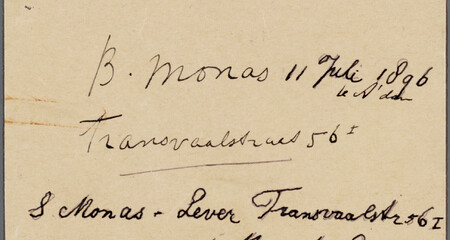 B. Monas 11 Juli 1896
te A'dam
Transvaalstraat 56 I
S Monas - Lever Transvaalstr 56 I